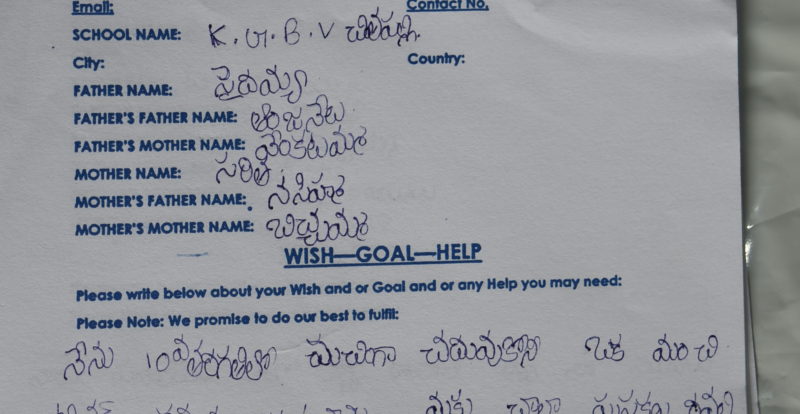 Email: Contact No.
SCHOOL NAME: K.G.B.V
City: Country:
FATHER NAME: సైదయ్య
FATHER'S FATHER NAME: ఆంజనేలు
FATHER'S MOTHER NAME: వెంకటమ్మ
MOTHER NAME: సరిత
MOTHER'S FATHER NAME:
MOTHER'S MOTHER NAME: బిచ్చమ్మ
WISH—GOAL—HELP
Please write below about your Wish and or Goal and or any Help you may need:
Please Note: We promise to do our best to fulfil:
నేను 10వ తరగతిలో చదువుకొని ఒక మంచి